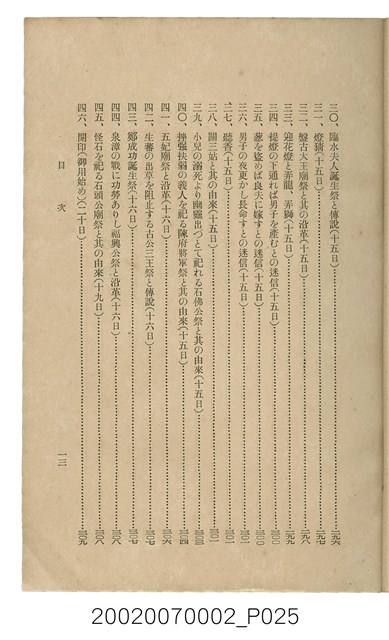 三〇、臨水夫人誕生祭と傳說(十五日)……二九六
三一、燈猜(十五日)……二九七
三二、盤古大王廟祭と其の沿革(十五日)……二九八
三三、迎花燈と弄龍、弄獅(十五日)……二九九
三四、提燈の下通れば男子を產むとの迷信(十五日)……三〇〇
三五、蔥を盜めば良夫に嫁すとの迷信(十五日)……三〇〇
三六、男子の夜更かし長命すとの迷信(十五日)……三〇一
三七、聽香(十五日)……三〇一
三八、關三姑と其の由來(十五日)……三〇一
三九、小兒の溺死より幽靈出づとて祀れる石佛公祭と其の由來(十五日)……三〇三
四〇、挫强扶弱の義人を祀る陳府將軍祭と其の由來(十五日)……三〇四
四一、五妃廟祭と沿革(十六日)……三〇六
四二、生蕃の出草を阻止する古公三王祭と傳說(十六日)……三〇七
四三、鄭成功誕生祭(十六日)……三〇七
四四、泉漳の戰に功勞ありし福興公祭と沿革(十六日)……三〇八
四五、怪石を祀る石頭公廟祭と其の由來(十九日)……三〇八
四六、開印(御用始め)(二十日)……三〇九
目次
一三
20020070002_P025